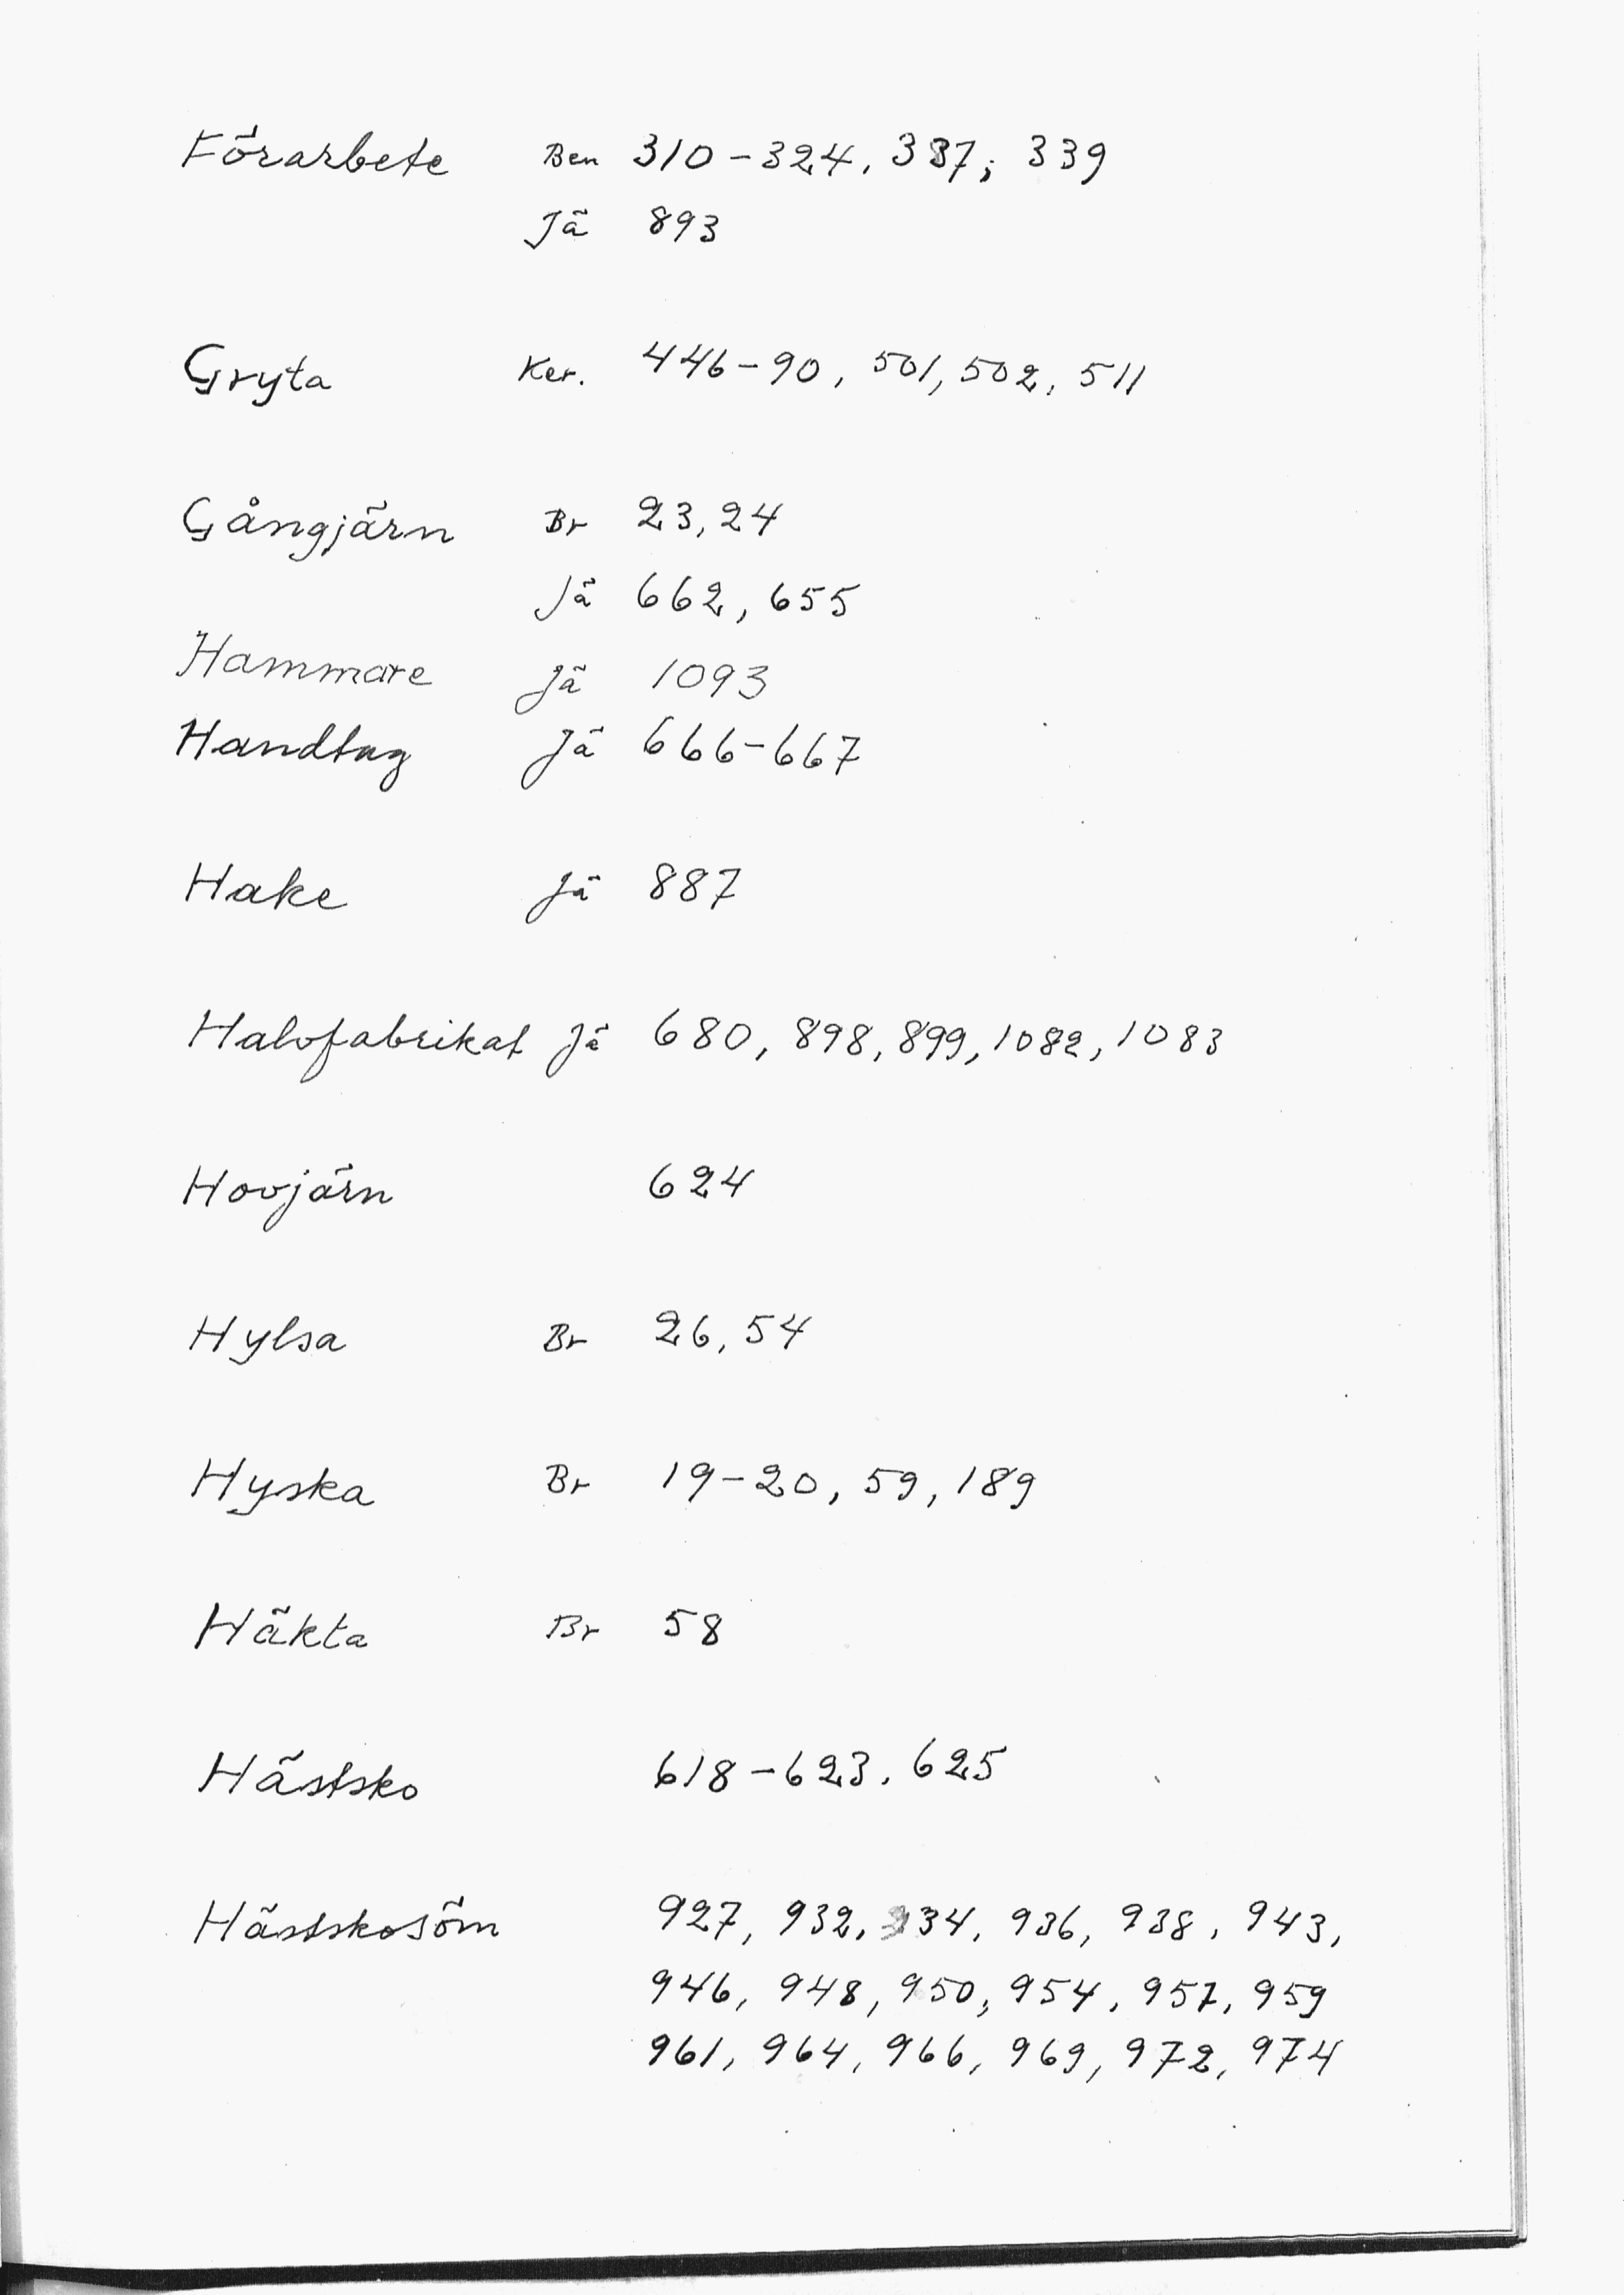 Förarbete Ben 310-324, 337, 339
Jä 893
Gryta Ker. 446-90, 501, 502, 511
Gångjärn Br 23, 24
Jä 662, 655
Hammare Jä 1093
Handtag Jä 666-667
Hake Jä 887
Halvfabrikat Jä 680, 898, 899, 1082, 1083
Hovjärn 624
Hylsa Br 26, 54
Hyska Br 19-20, 59, 189
Häkta Br 58
Hästsko 618-623, 625
Hästskosöm 927, 932, 934, 936, 938, 943,
946, 948, 950, 954, 957, 959
961, 964, 966, 969, 972, 974